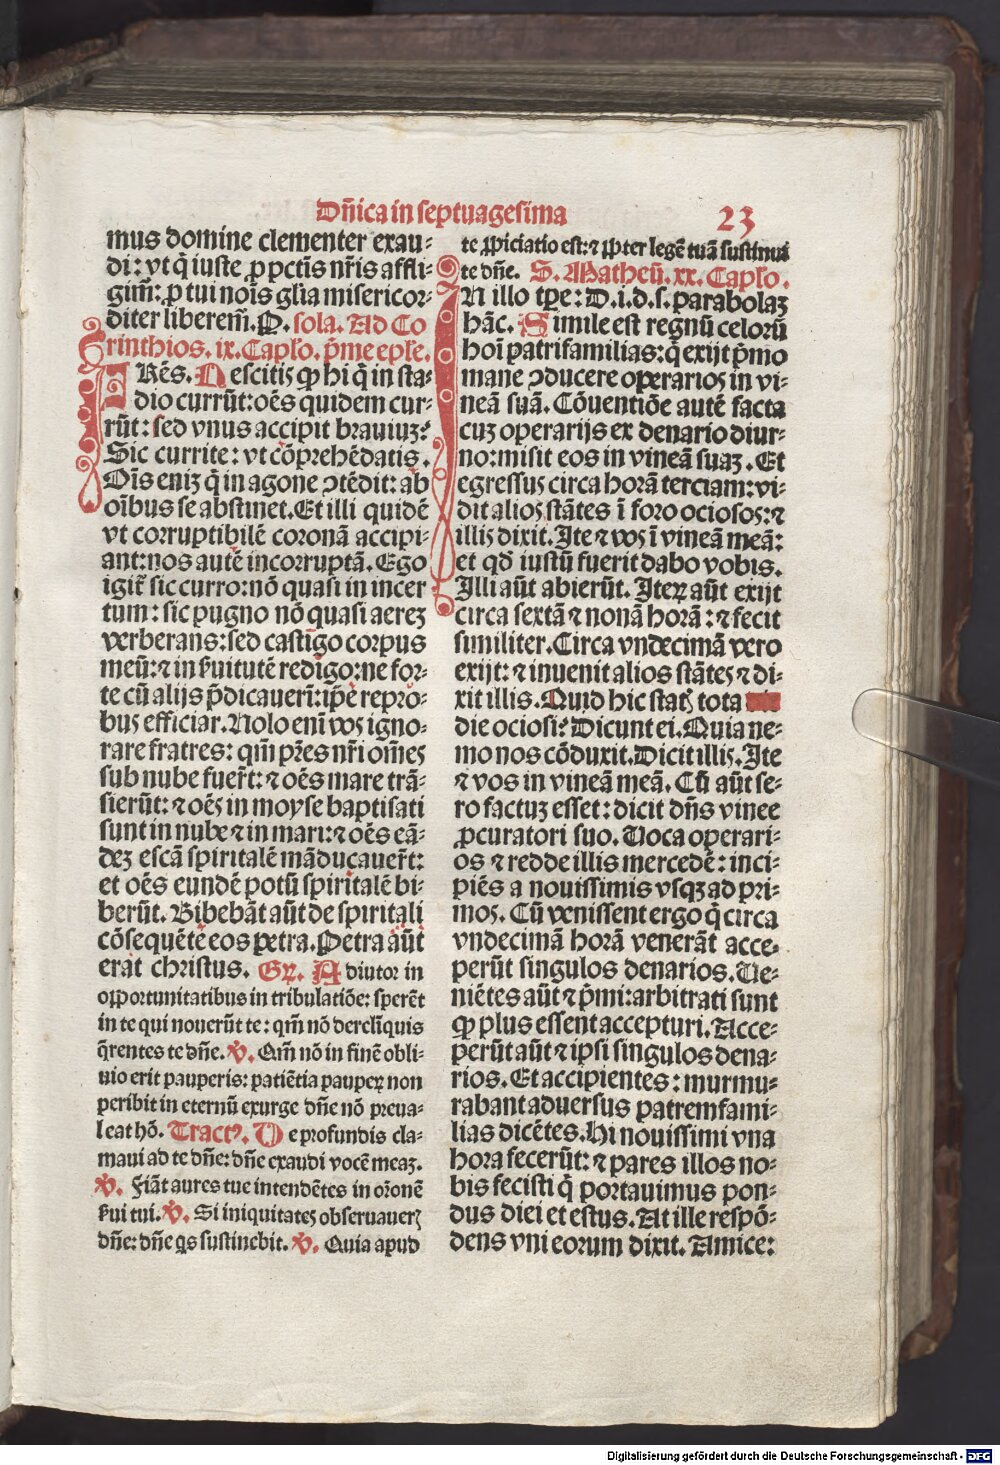 Dñica in septuagesima
23
mus domine clementer exau⸗
di: vt q̃ iuste ꝓ pctĩs nr̃is affli⸗
gim̃: ꝓ tui noĩs gl̃ia misericor⸗
diter liberem̃. P. sola. Ad Co
rinthios. ix. Caplo. p̃me eple.
FRẽs. Nescitis ꝙ hi q̃ in sta⸗
dio currũt: oẽs quidem cur⸗
rũt: sed vnus accipit brauiuꝫ?
Sic currite: vt cõprehẽdatis.
Oĩs eniꝫ q̃ in agone ↄtẽdit: ab
oĩbus se abstinet. Et illi quidẽ
vt corruptibilẽ coronã accipi⸗
ant: nos autẽ incorruptã. Ego
igit̃ sic curro: nõ quasi in incer
tum: sic pugno nõ quasi aereꝫ
verberans: sed castigo corpus
meũ: ⁊ in ẜuitutẽ redigo: ne for⸗
te cũ alijs p̃dicauerĩ: ip̃e repro⸗
bus efficiar. Nolo enĩ vos igno⸗
rare fratres: qm̃ pr̃es nr̃i om̃es
sub nube fuer̃t: ⁊ oẽs mare trã⸗
sierũt: ⁊ oẽs in moyse baptisati
sunt in nube ⁊ in mari: ⁊ oẽs eã⸗
deꝫ escã spiritalẽ mãducauer̃t:
et oẽs eundẽ potũ spiritalẽ bi⸗
berũt. Bibebãt aũt de spiritali
cõsequẽte eos petra. Petra aũt
erat christus. Gꝛ. Adiutor in
oꝑportunitatibus in tribulatiõe: sperẽt
in te qui nouerũt te: qm̃ nõ derelĩquis
q̃rentes te dñe. ℣. Qm̃ nõ in finẽ obli⸗
uio erit pauperis: patiẽtia pauperꝝ non
peribit in eternũ exurge dñe nõ preua⸗
leat hõ. Tractꝰ. De profundis cla⸗
maui ad te dñe: dñe exaudi vocẽ meaꝫ.
℣. Fiãt aures tue intendẽtes in orõnẽ
ẜui tui. ℣. Si iniquitates obseruaueꝝ
dñe: dñe qs sustinebit. ℣. Quia apud
te ꝓpiciatio est: ⁊ ꝓpter legẽ tuã sustinui
te dñe. S. Matheũ. xx. Caplo.
IN illo tp̃e: D. i. d. s. parabolaꝫ
hãc. Simile est regnũ celorũ
hoĩ patrifamilias: q̃ exijt p̃mo
mane ↄducere operarios in vi⸗
neã suã. Cõuentiõe autẽ facta
cuꝫ operarijs ex denario diur⸗
no: misit eos in vineã suaꝫ. Et
egressus circa horã terciam: vi⸗
dit alios stãtes ĩ foro ociosos: ⁊
illis dixit. Ite ⁊ vos ĩ vineã meã:
et qđ iustũ fuerit dabo vobis.
Illi aũt abierũt. Iteꝝ aũt exijt
circa sextã ⁊ nonã horã: ⁊ fecit
similiter. Circa vndecimã vero
exijt: ⁊ inuenit alios stãtes ⁊ di⸗
xit illis. Quid hic statꝭ tota
die ociosi? Dicunt ei. Quia ne⸗
mo nos cõduxit. Dicit illis. Ite
⁊ vos in vineã meã. Cũ aũt se⸗
ro factuꝫ esset: dicit dñs vinee
ꝓcuratori suo. Uoca operari⸗
os ⁊ redde illis mercedẽ: inci⸗
piẽs a nouissimis vsqꝫ ad pri⸗
mos. Cũ venissent ergo q̃ circa
vndecimã horã venerãt acce⸗
perũt singulos denarios. Ue⸗
niẽtes aũt ⁊ p̃mi: arbitrati sunt
ꝙ plus essent accepturi. Acce⸗
perũt aũt ⁊ ipsi singulos dena⸗
rios. Et accipientes: murmu⸗
rabant aduersus patremfami⸗
lias dicẽtes. Hi nouissimi vna
hora fecerũt: ⁊ pares illos no⸗
bis fecisti q̃ portauimus pon⸗
dus diei et estus. At ille respõ⸗
dens vni eorum dixit. Amice:
Digitalisierung gefördert durch die Deutsche Forschungsgemeinschaft - DFG